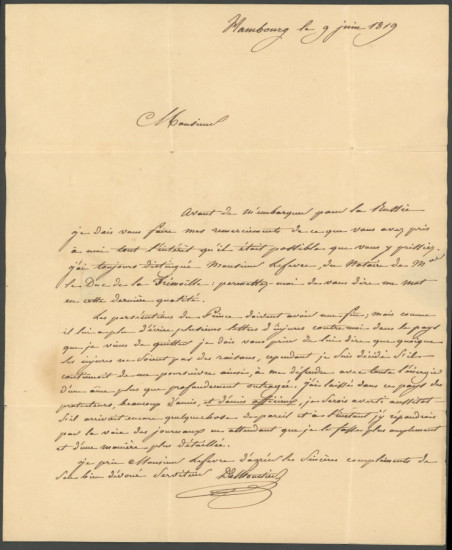 Hambourg le 9 juin 1819
Monsieur
Avant de m'embarquer pour la Russie
je dois vous faire mes remerciments de ce que vous avez pris
à moi tout l'intérêt qu'il était possible que vous y prissiez.
j'ai toujours distingué Monsieur Lefevre, du Notaire de Mr
le Duc de la Trimoille: permettez-moi de vous dire un mot
en cette dernière qualité.
Les persécutions du Prince doivent avoir une fin; mais comme
il lui a plu d'écrire plusieurs lettres d'injures contre moi dans le pays
que je viens de quitter, je dois vous prier de lui dire que quoique
les injures ne soient pas des raisons, cependant je suis décidé s'il
continuait de me poursuivre ainsi, à me défendre avec toute l'énergie
d'une âme plus que profondement outragée. j'ai laissé dans ce pays des
protecteurs, beaucoup d'amis, et d'amis affectionés, je serais averti aussitot
s'il arrivait encore quelquechose de pareil et à l'instant j'y répondrais
par la voie des journaux en attendant que je le fasse plus amplement
et d'une manière plus détaillée.
je prie Monsieur Lefevre d'agréer les sincères complimens de
son bien dévoué Serviteur